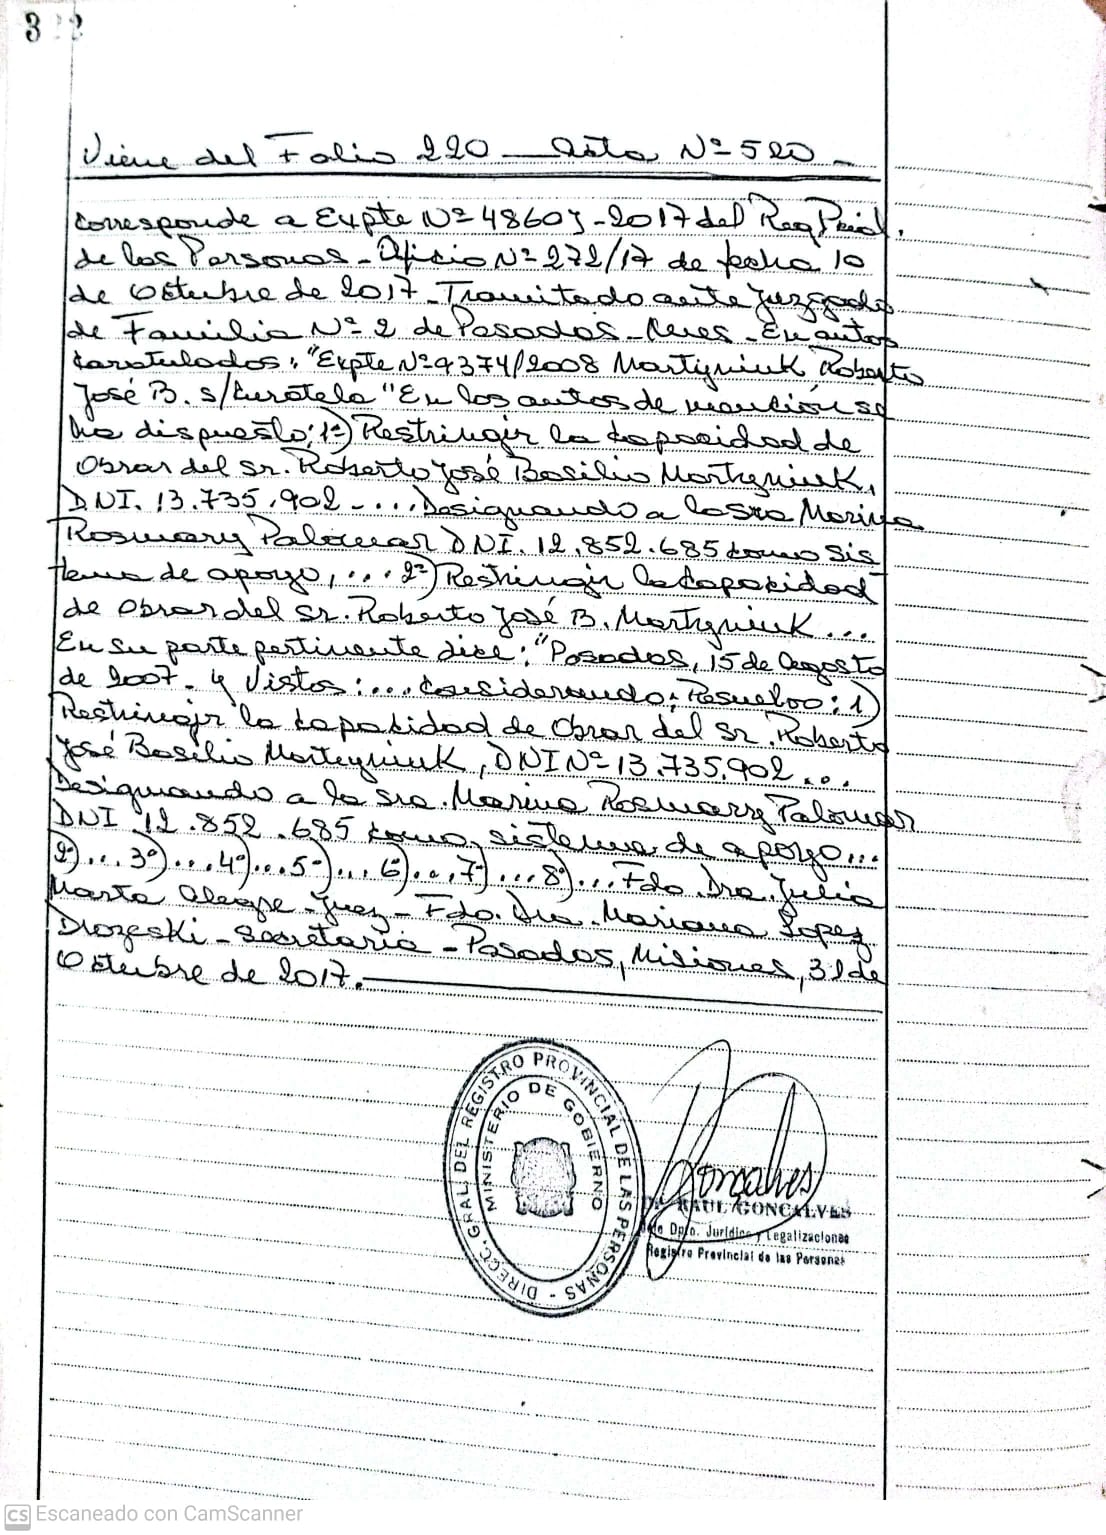 322
Viene del Folio 220 — Acta Nº 520 -
corresponde a Expte Nº 4860J-2017 del Reg Pcial.
de las Personas - Oficio Nº 272/17 de fecha 10
de Octubre de 2017 - Tramitado ante Juzgado
de Familia Nº 2 de Posadas - Mnes - En autos
caratulados: "Expte Nº 9374/2008 Martyniuk Roberto
José B. s/Curatela" En los autos de mención se
ha dispuesto; 1º) Restringir la capacidad de
Obrar del Sr. Roberto José Basilio Martyniuk,
DNI. 13.735.902 - ... Designando a la sra Marina
Rosmary Palomar DNI. 12.852.685 como Sis
tema de apoyo, ... 2º) Restringir la capacidad
de Obrar del Sr. Roberto José B. Martyniuk ...
En su parte pertinente dice: "Posadas, 15 de Agosto
de 2007 - y Vistos: ... Considerando; Resuelvo: 1)
Restringir la capacidad de Obrar del Sr. Roberto
José Basilio Martyniuk, DNI Nº 13.735.902 ...
Designando a la sra. Marina Rosmary Palomar
DNI 12.852.685 como sistema de apoyo ...
2º) ... 3º) ... 4º) ... 5º) ... 6º) ... 7º) ... 8º) ... Fdo. Dra. Julia
Marta Alegre - Juez - Fdo. Dra. Mariana Lopez
Drozeski - Secretaria - Posadas, Misiones, 31 de
Octubre de 2017.
DIRECC. GRAL. DEL REGISTRO PROVINCIAL DE LAS PERSONAS -
MINISTERIO DE GOBIERNO
Gonçalves
RAUL GONCALVES
Jefe Dpto. Jurídico y Legalizaciones
Registro Provincial de las Personas
CS Escaneado con CamScanner